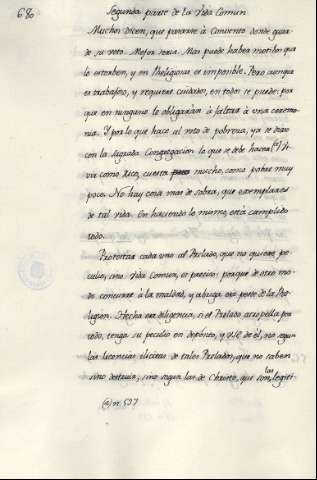 680
Segunda parte de la Vida Comun
Muchos dicen, que pararàn à Convento donde guar-
de su voto. Mejor seria. Mas puede haber motibos que
lo estorben, y en Religiosas es imposible. Pero aunque
es trabajoso, y requiere cuidado, en todos se puede: por
que en ninguno le obligaràn à faltar à una ceremo-
nia. Y por lo que hace al voto de pobreza, ya se dixo
con la sagrada Congregacion lo que se debe hacer (a) Vi-
vir como Rico, cuesta mucho, como pobre muy
poco. No hay cosa mas de sobra, que exemplares
de tal vida. En haciendo lo mismo, està cumplido
todo.
Protextar cada uno al Prelado, que no quiere pe-
culio, sino Vida Comun, es preciso: porque de otro mo-
do concurre à la maldad, y abriga ese porte de la Re-
ligion. Hecha esa diligencia, si el Prelado atropella por
todo, tenga su peculio en depòsito, y use de èl, no segun
las licencias ilicitas de tales Prelados, que no saben
sino destruir; sino segun las de Christo, que son las legiti-
(a) n. 537